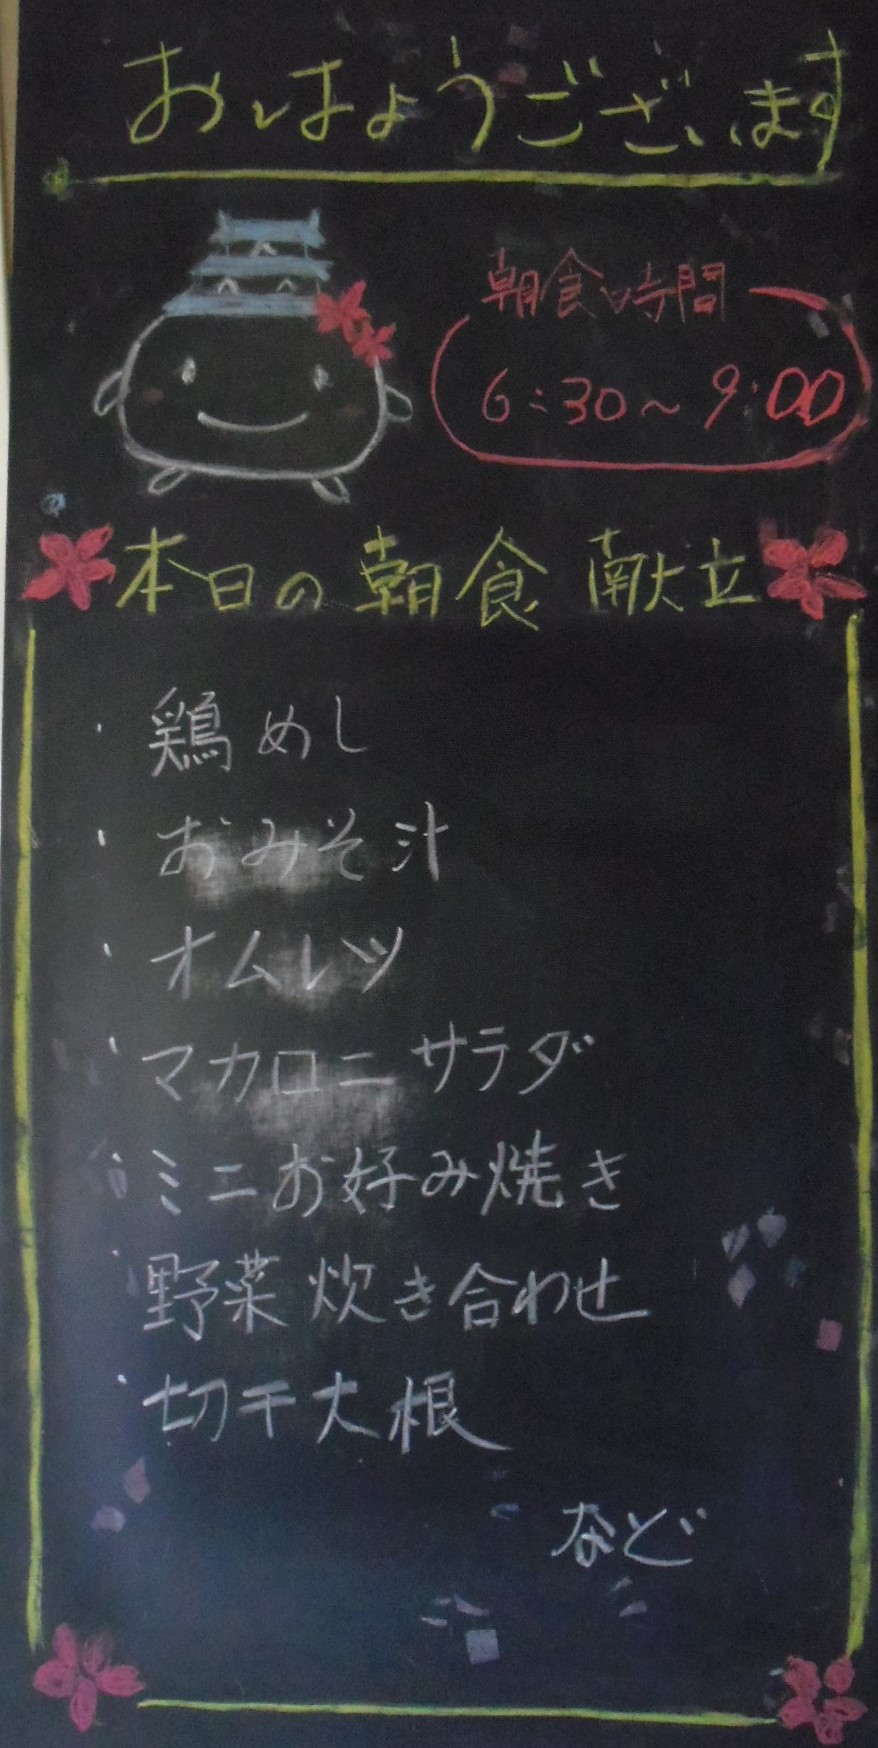 おはようございます
朝食時間
6:30〜9:00
本日の朝食献立
・鶏めし
・おみそ汁
・オムレツ
・マカロニサラダ
・ミニお好み焼き
・野菜炊き合わせ
・切干大根
など